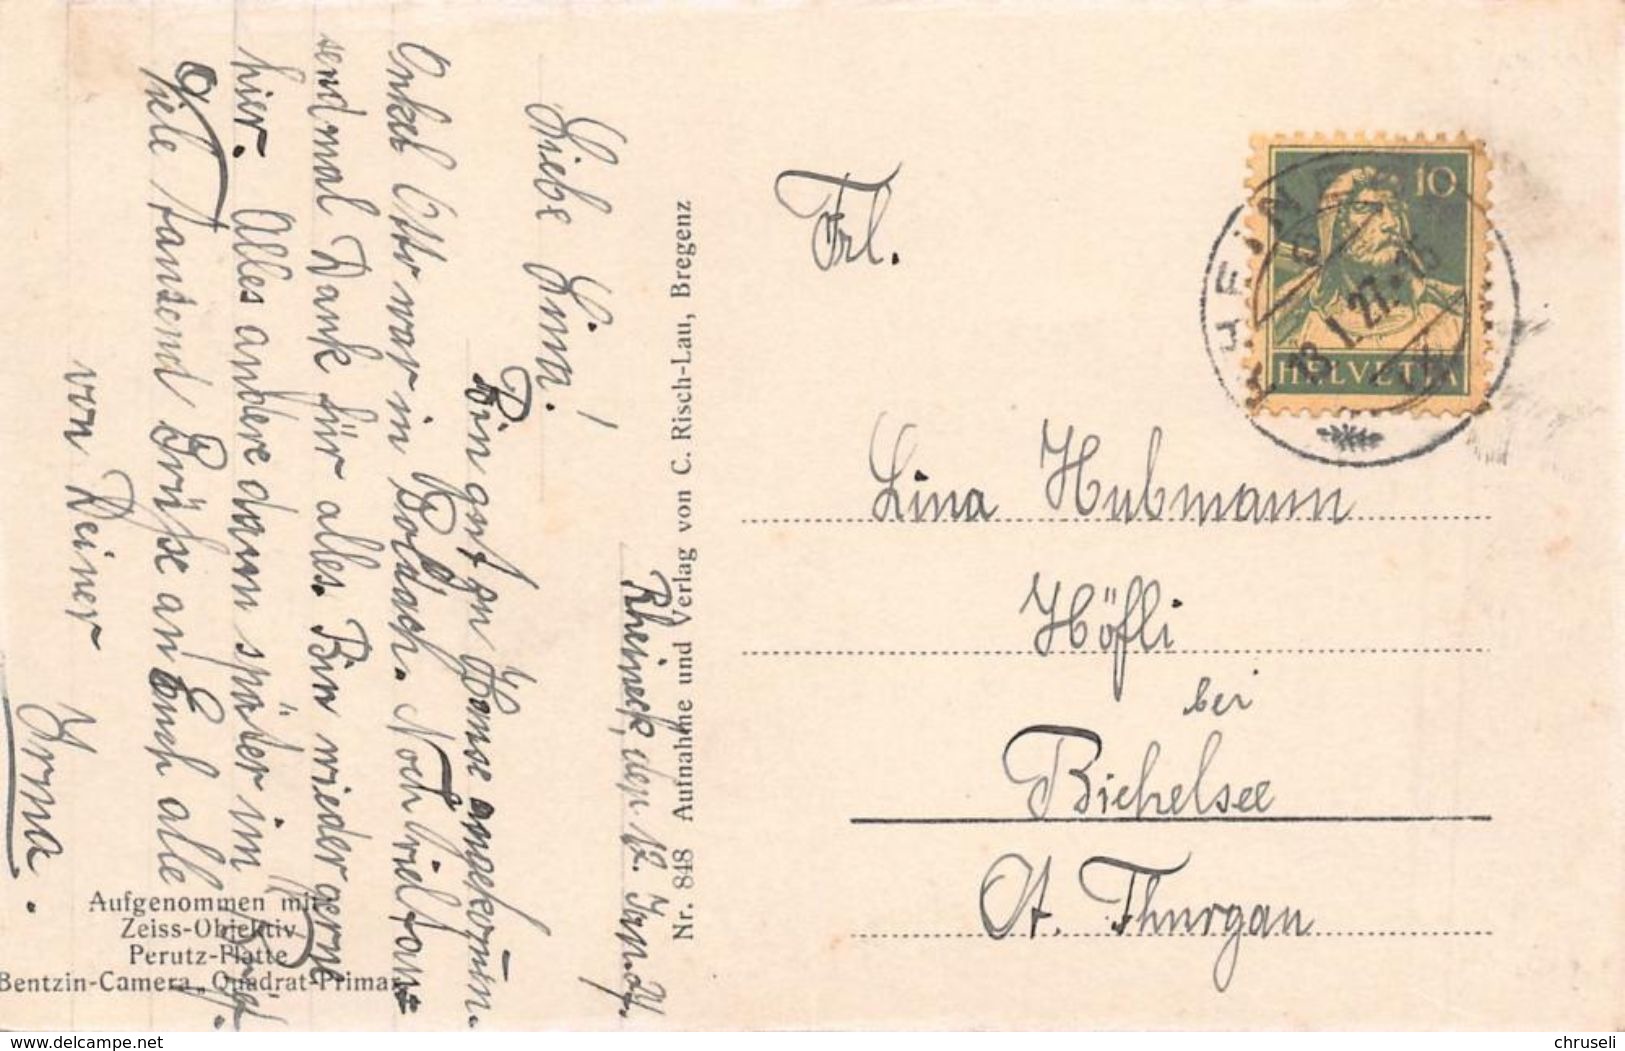 Rheineck, den 12. Jan. 27.
Liebe Lina!
Bin gut zu Hause angekomm.
Onkel Otto war in Goldach. Noch viel tau-
send mal Dank für alles. Bin wieder gerne
hier. Alles andere dann später im Brief.
Viele tausend Grüße an Euch alle
von Deiner Irma.
Aufgenommen mit
Zeiss-Objektiv
Perutz-Platte
Bentzin-Camera „Quadrat-Primar
Nr. 848 Aufnahme und Verlag von C. Risch-Lau, Bregenz
10
HELVETIA
RHEINECK
13.I.27.-15
Frl.
Lina Hubmann
Höfli
bei
Bichelsee
Kt. Thurgau
www.delcampe.net
chruseli